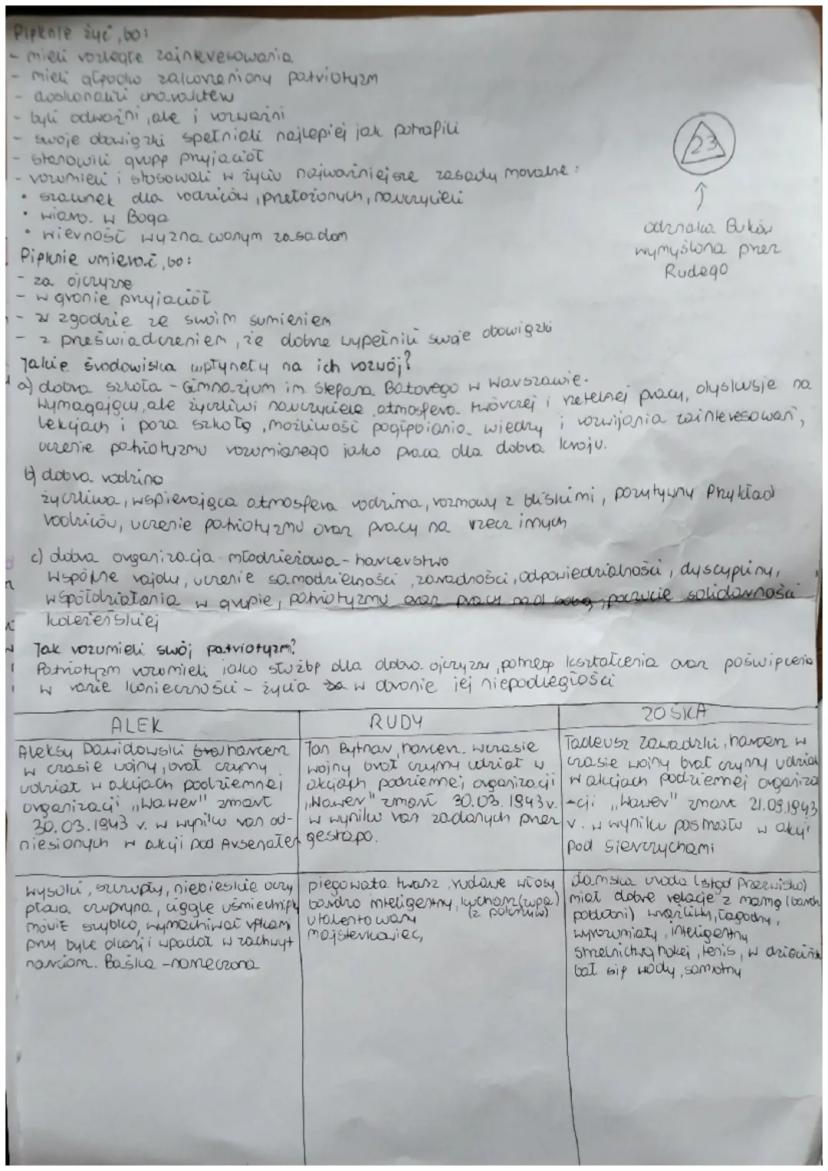 Pięknie żyć, bo:
- mieli rozległe zainteresowania
- mieli głęboko zakorzeniony patriotyzm
- doskonalili charakter
- byli odważni, ale i rozważni
- swoje obowiązki spełniali najlepiej jak potrafili
- stanowili grupę przyjaciół
- rozumieli i stosowali w życiu najważniejsze zasady moralne:
• szacunek dla rodziców, przełożonych, nauczycieli
• wiara w Boga
• wierność wyznawanym zasadom
23
odznaka Buków
wymyślona przez
Rudego
Pięknie umierać, bo:
- za ojczyznę
- w gronie przyjaciół
- w zgodzie ze swoim sumieniem
- z przeświadczeniem, że dobrze wypełnili swoje obowiązki
Jakie środowiska wpłynęły na ich rozwój?
a) dobra szkoła - Gimnazjum im Stefana Batorego w Warszawie.
Wymagający, ale życzliwi nauczyciele, atmosfera twórczej i rzetelnej pracy, dyskusje na
lekcjach i poza szkołą, możliwość pogłębiania wiedzy i rozwijania zainteresowań,
uczenie patriotyzmu rozumianego jako praca dla dobra kraju.
b) dobra rodzina
życzliwa, wspierająca atmosfera rodzinna, rozmowy z bliskimi, pozytywny Przykład
rodziców, uczenie patriotyzmu oraz pracy na rzecz innych
c) dobra organizacja młodzieżowa - harcerstwo
Wspólne rajdy, uczenie samodzielności, zaradności, odpowiedzialności, dyscypliny,
współdziałania w grupie, patriotyzmu oraz pracy nad sobą, poczucie solidarności
koleżeńskiej
Jak rozumieli swój patriotyzm?
Patriotyzm rozumieli jako służbę dla dobra ojczyzny, potrzebę kształcenia oraz poświęcenia
w razie konieczności - życia w obronie jej niepodległości
ALEK
Aleksy Dawidowski harcerz
w czasie wojny, brał czynny
udział w akcjach podziemnej
organizacji „Wawer" zmarł
30.03.1943 r. w wyniku ran od-
niesionych w akcji pod Arsenałem
RUDY
Jan Bytnar, harcerz. w czasie
wojny brał czynny udział w
akcjach podziemnej organizacji
„Wawer" zmarł 30.03.1943 r.
w wyniku ran zadanych przez
gestapo.
ZOŚKA
Tadeusz Zawadzki, harcerz w
czasie wojny brał czynny udział
w akcjach podziemnej organiza
-cji „Wawer" zmarł 21.09.1943
r. w wyniku postrzału w akcji
pod Sieczychami
wysoki, szczupły, niebieskie oczy
płowa czupryna, ciągle uśmiechnięty
mówił szybko, wymachiwał rękami
przy byle okazji wpadał w zachwyt
narciarz. Baśka - narzeczona
piegowata twarz, rudawe włosy
bardzo inteligentny, kucharz (zupa)
(z pokrzyw)
utalentowany
majsterkowicz,
damska uroda (stąd przezwisko)
miał dobre relacje z mamą (bardzo
podobni) wrażliwy, łagodny,
wyrozumiały, inteligentny
strzelnictwo, hokej, tenis, w dzieciństwie
bał się wody, samotny